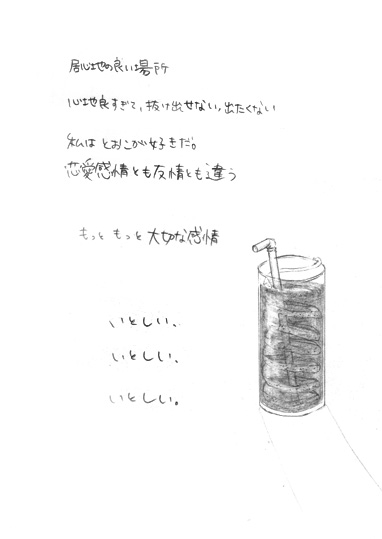 居心地の良い場所
心地良すぎて、抜け出せない、出たくない
私はとおこが好きだ。
恋愛感情とも友情とも違う
もっと もっと 大切な感情
いとしい、
いとしい、
いとしい。